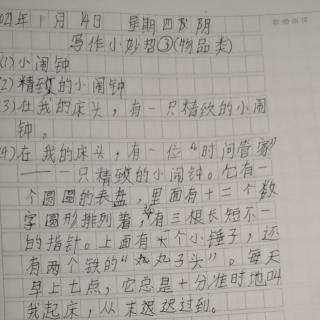 021年1月14日 星期四 阴
写作小妙招③(物品类)
(1)小闹钟
(2)精致的小闹钟
(3)在我的床头,有一只精致的小闹
钟。
(4)在我的床头,有一位“时间管家”
——一只精致的小闹钟。它有一
个圆圆的表盘,里面有十二个数
字圆形排列着,有三根长短不一
的指针。上面有个小锤子,还
有两个铁的“丸子头”。每天
早上七点,它总是十分准时地叫
我起床,从未迟迟过到。